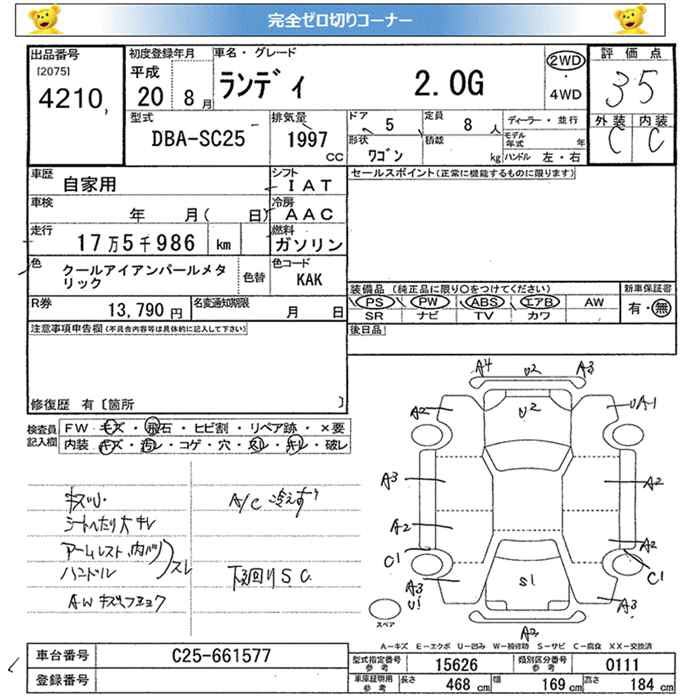 完全ゼロ切りコーナー
出品番号
[2075]
4210,
初度登録年月
平成
20 8月
車名・グレード
ランディ 2.0G
2WD
・
4WD
評価点
3.5
外装 内装
C C
型式
DBA-SC25
排気量
1997
CC
ドア
5
定員
8人
形状
ワゴン
積載
kg
ディーラー・並行
モデル年式 年
ハンドル 左・右
車歴
自家用
シフト
IAT
車検
年 月( 日)
冷房
AAC
走行
17万5千986 km
燃料
ガソリン
色
クールアイアンパールメタリック
色替
色コード
KAK
R券
13,790円
名変通知期限
月 日
セールスポイント(正常に機能するものに限ります)
装備品 (純正品に限り○をつけてください)
PS PW ABS エアB AW
SR ナビ TV カワ
新車保証書
有・無
後日品
注意事項申告欄(不具合内容等は具体的に記入して下さい)
修復歴 有〔箇所 〕
検査員記入欄
FW キズ・飛石・ヒビ割・リペア跡・×要
内装 キズ・汚レ・コゲ・穴・スレ・キレ・破レ
シートヘタリ大 キレ
アームレスト、内ハリ
ハンドル
スレ
A/C 冷えず
下回りS.C.
A4 U2 A3
A2 U2 UA-1
A3 A2
A2 A2
C1 C1
A3 S1
U1 A3
A2
スペア
A-キズ E-エクボ U-凹み W-補修跡 S-サビ C-腐食 XX-交換済
車台番号
C25-661577
登録番号
型式指定番号
参考
15626
類別区分番号
参考
0111
車庫証明用
参考
長さ 468cm
幅 169cm
高さ 184cm